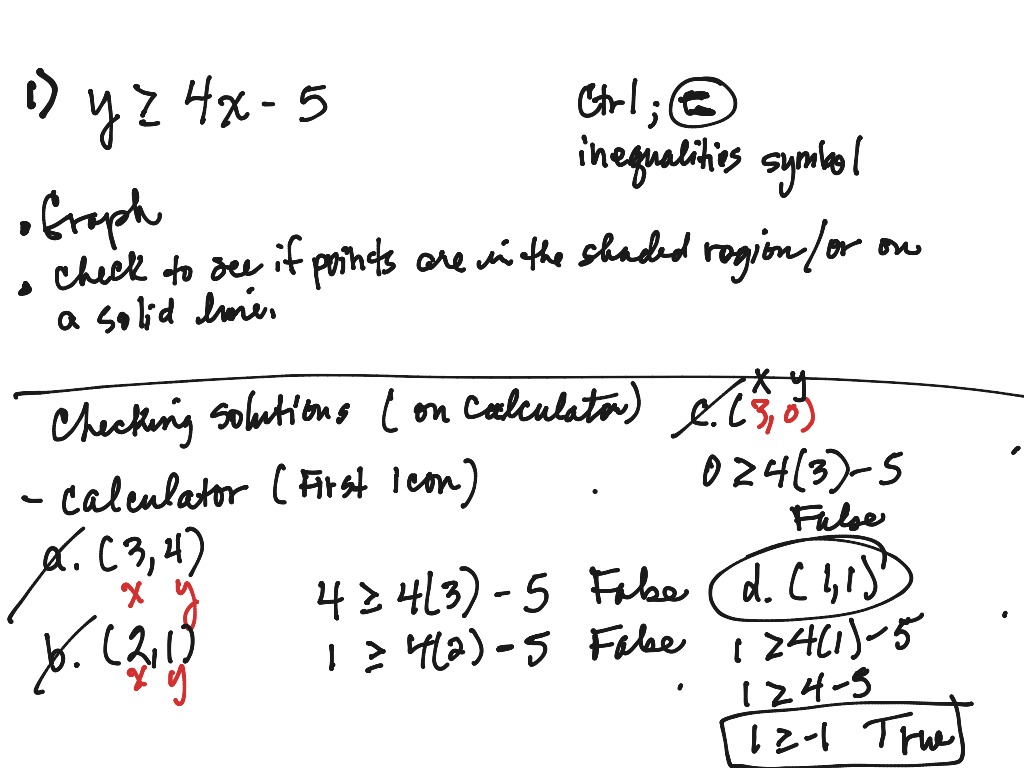 1) y ≥ 4x - 5
Ctrl ; =
inequalities symbol
• Graph
• check to see if points are in the shaded rogion/or on
a solid line.
Checking solutions (on calculator)
- Calculator (First Icon)
a. (3,4)
x y
4 ≥ 4(3) - 5 False
b. (2,1)
x y
1 ≥ 4(2) - 5 False
x y
c. (3,0)
0 ≥ 4(3) - 5
False
d. (1,1)
1 ≥ 4(1) - 5
1 ≥ 4 - 5
1 ≥ -1 True